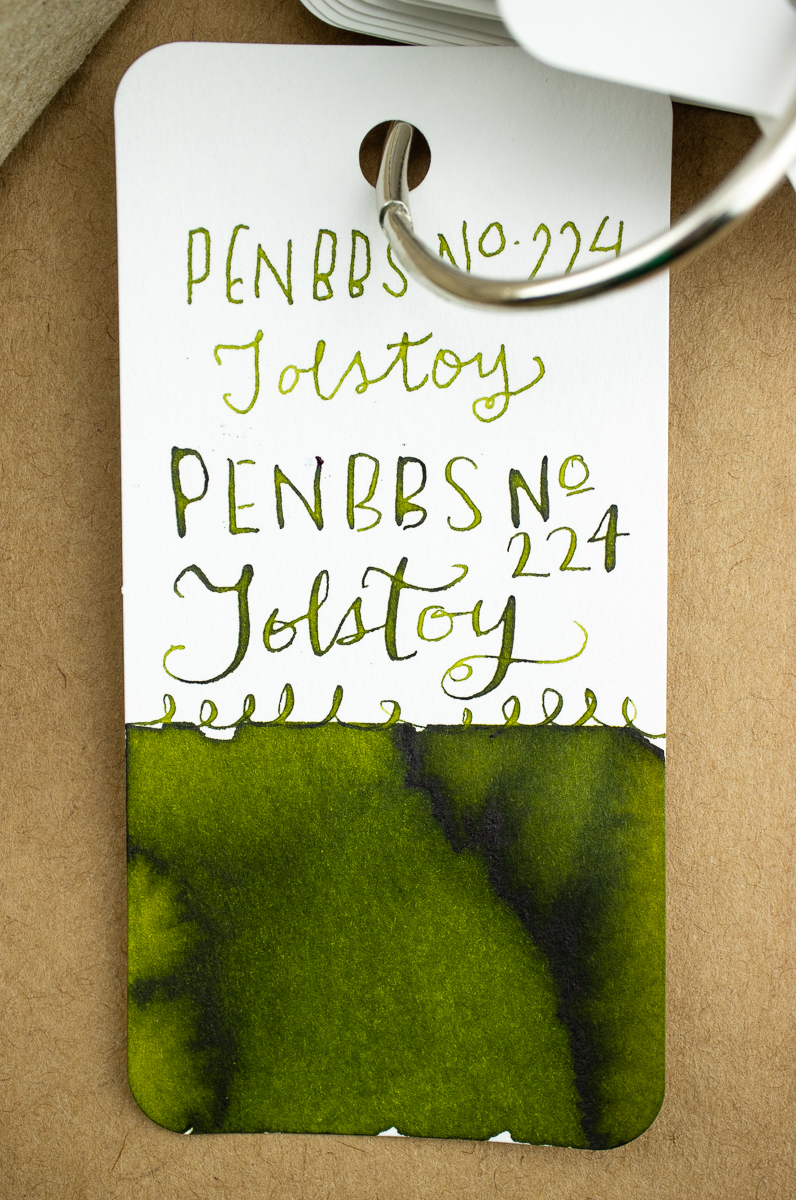 PENBBS No. 224
Tolstoy
PENBBS No
224
Tolstoy